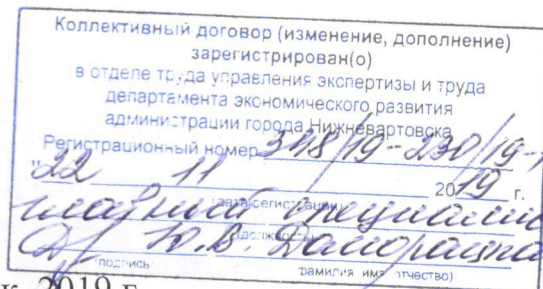 Коллективный договор (изменение, дополнение)
зарегистрирован(о)
в отделе труда управления экспертизы и труда
департамента экономического развития
администрации города Нижневартовска
Регистрационный номер 348/19-230/19-1
"22 11 2019 г.
(дата регистрации)
главный специалис
(должность)
Ю.В.
(подпись фамилия имя отчество)
2019 г